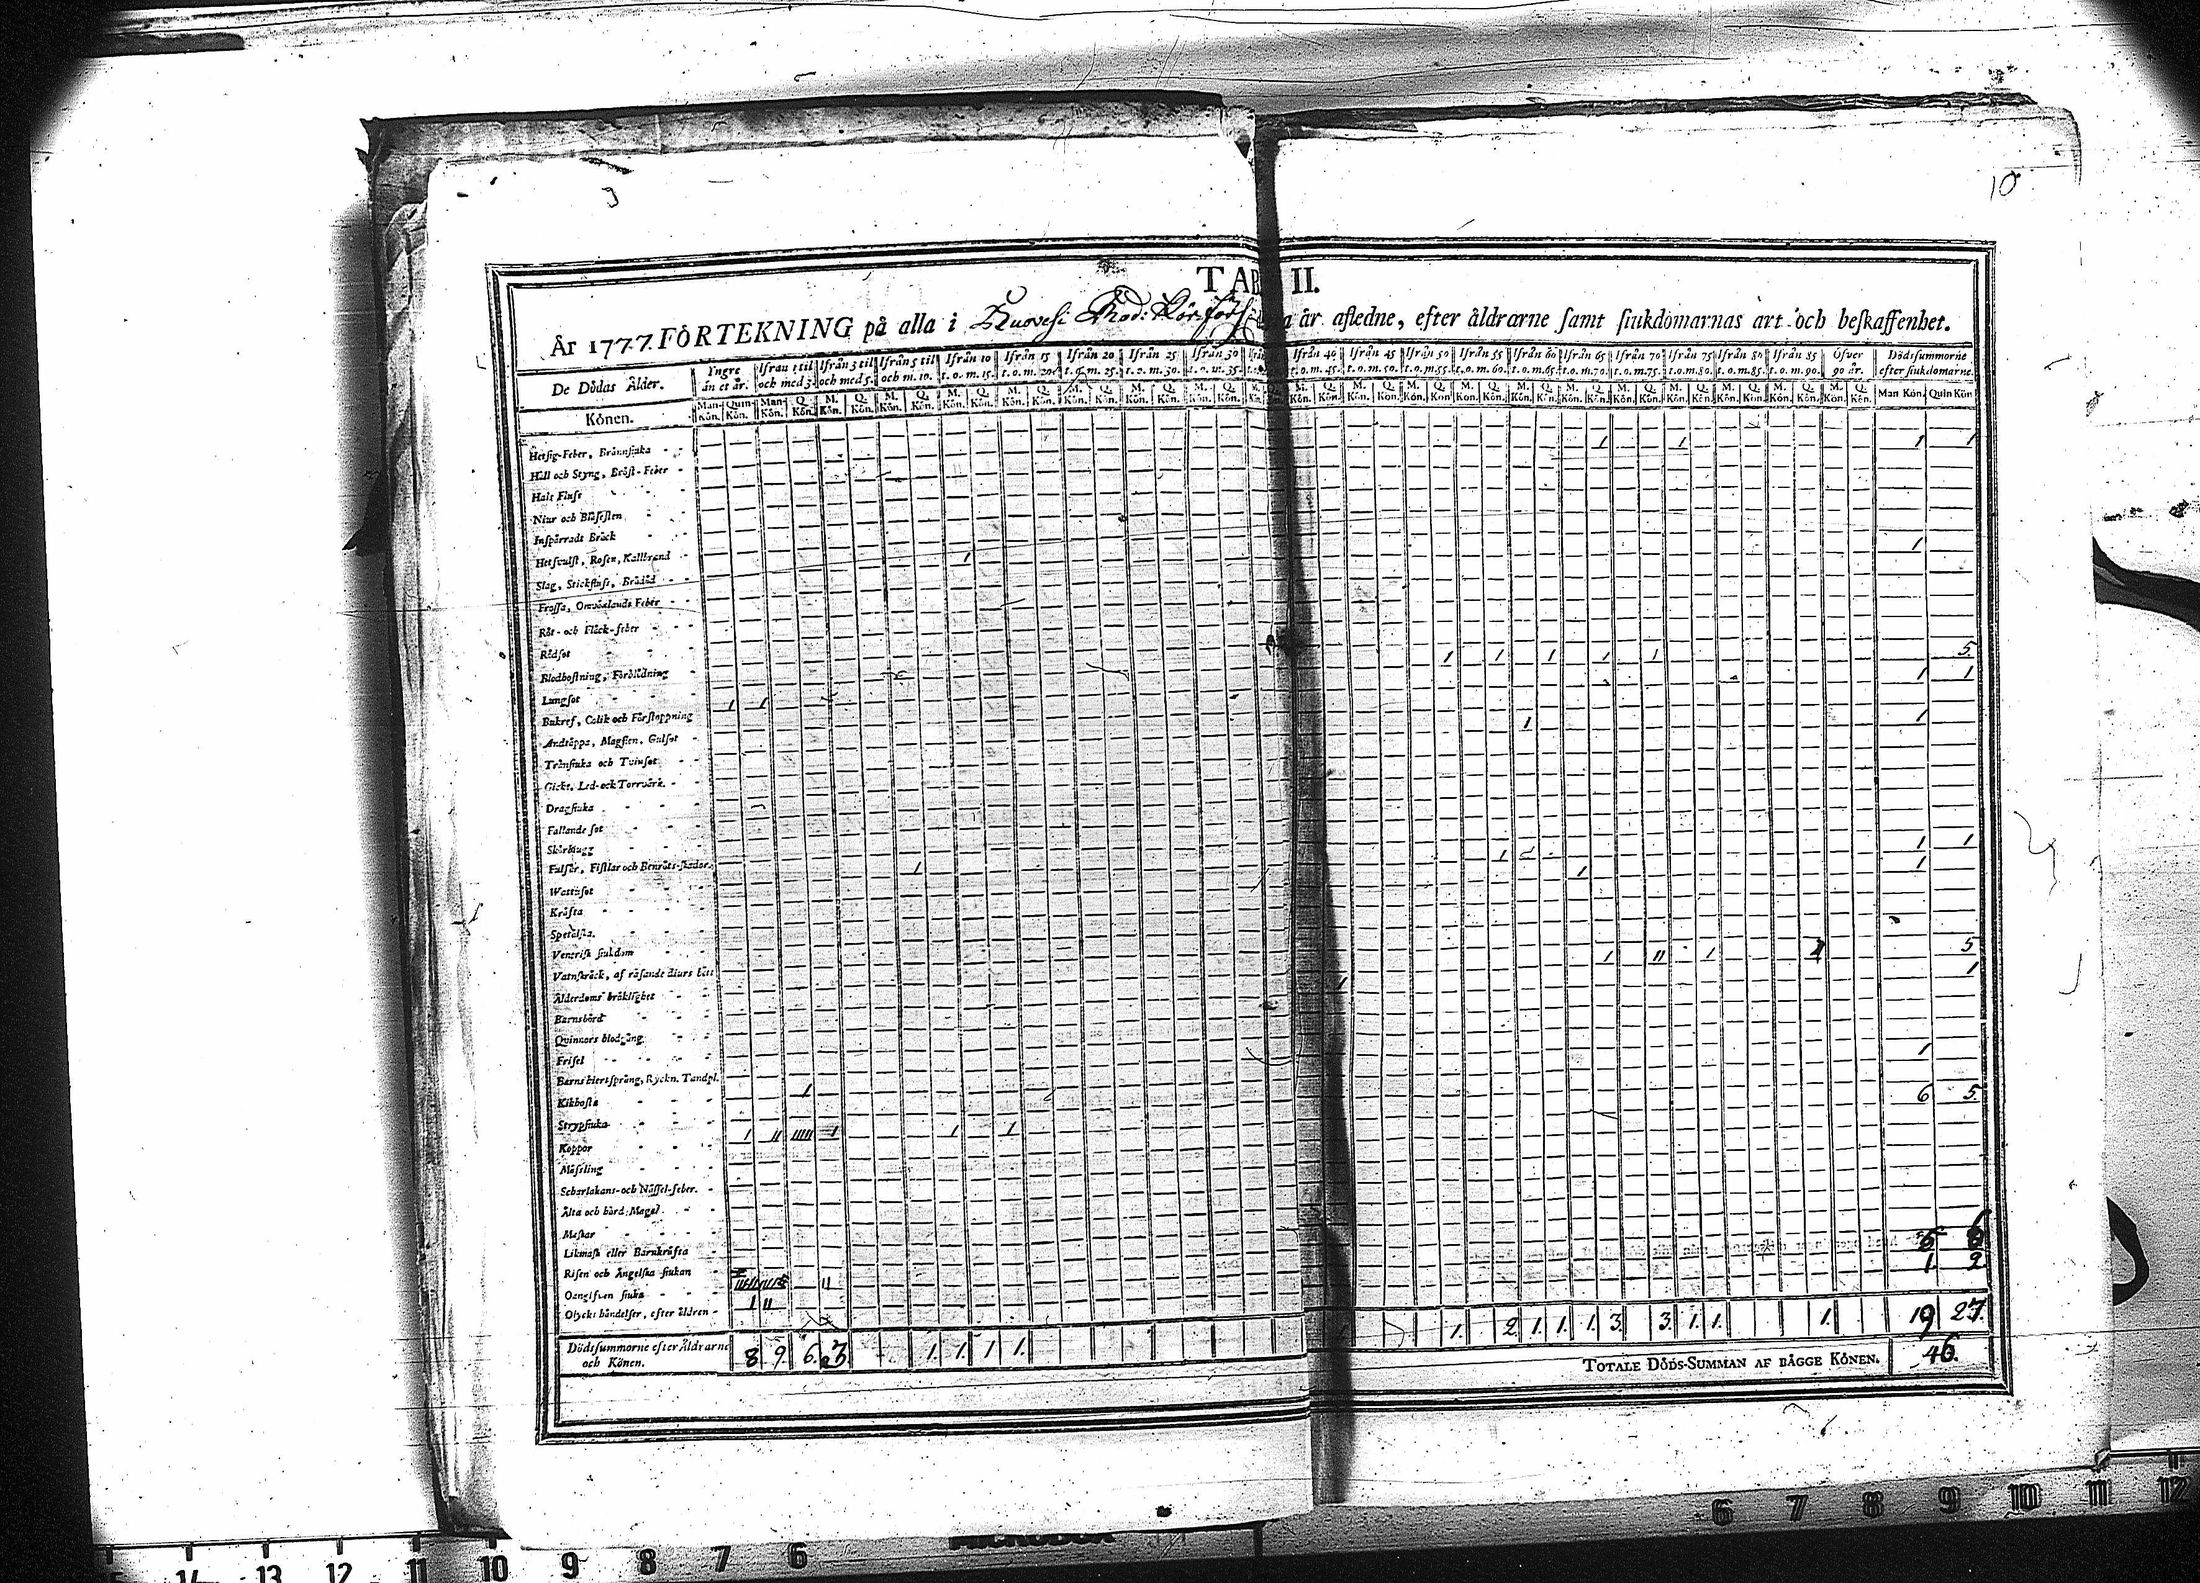 10
TAB II.
År 1777. FÖRTEKNING på alla i Ruovesi Mod: Kör a år afledne, efter åldrarne samt siukdomarnas art och beskaffenhet.
De Dödas Ålder. Yngre än et år. Ifrån 1 til och med 3. Ifrån 3 til och med 5. Ifrån 5 til och m. 10. Ifrån 10 t. o. m. 15. Ifrån 15 t. o. m. 20. Ifrån 20 t. o. m. 25. Ifrån 25 t. o. m. 30. Ifrån 30 t. o. m. 35. Ifrån 40 t. o. m. 45. Ifrån 45 t. o. m. 50. Ifrån 50 t. o. m. 55. Ifrån 55 t. o. m. 60. Ifrån 60 t. o. m. 65. Ifrån 65 t. o. m. 70. Ifrån 70 t. o. m. 75. Ifrån 75 t. o. m. 80. Ifrån 80 t. o. m. 85. Ifrån 85 t. o. m. 90. Öfver 90 år. Dödssummorne efter siukdomarne.
Könen. Man-Kön. Quin-Kön. Man-Kön. Q. Kön. M. Kön. Q. Kön. M. Kön. Q. Kön. M. Kön. Q. Kön. M. Kön. Q. Kön. M. Kön. Q. Kön. M. Kön. Q. Kön. M. Kön. Q. Kön. M. Kön. Q. Kön. M. Kön. Q. Kön. M. Kön. Q. Kön. M. Kön. Q. Kön. M. Kön. Q. Kön. M. Kön. Q. Kön. M. Kön. Q. Kön. M. Kön. Q. Kön. M. Kön. Q. Kön. M. Kön. Q. Kön. M. Kön. Q. Kön. Man Kön. Quin Kön
Hetsig-Feber, Brännsiuka 1 1 1 1
Håll och Styng, Bröst-Feber
Halt Fluss
Niur och Blåsesten
Inspärradt Bråck
Hetsvulst, Rosen, Kallbrand 1 1
Slag, Stickfluss, Brådöd
Frossa, Omväxlande Feber
Röt- och Fläck-feber
Rödsot 1 1 1 1 1 5.
Blodhostning, Förblödning 1 1
Lungsot 1 1
Bukref, Colik och Förstoppning 1 1
Andtäppa, Magsten, Gulsot
Trånsiuka och Tvinsot
Gickt, Led- och Torrvärk
Dragsiuka
Fallande sot
Skörbiugg 1 1
Fulsår, Fistlar och Benröts-skador 1 1 1 1
Wattusot
Kräfta
Spetälska
Venerisk siukdom 1 11 1 5
Vatnskräck, af rasande diurs bett 1
Ålderdoms bräklighet 1
Barnsbörd
Qvinnors blodgång
Frisel 1
Barns hiertsprång, Ryckn. Tandpl. 1
Kikhosta 6 5.
Strypsiuka 1 11 11111 1 1 1
Koppor
Mässling
Scharlakans- och Nässel-feber.
Älta och bård-Magel
Maskar
Likmask eller Barnkräfta
Risen och Ängelska siukan 11
Oangifven siuka 1 11 1. 2
Olycks händelser, efter åldren
Dödssummorne efter Åldrarne och Könen. 8 9. 6. 3. 1. 1. 1 1. 1. 2 1. 1. 1. 3. 3. 1. 1. 1. 19 27.
TOTALE DÖDS-SUMMAN AF BÅGGE KÖNEN. 46.
14 13 12 11 10 9 8 7 6
6 7 8 9 10 11 12